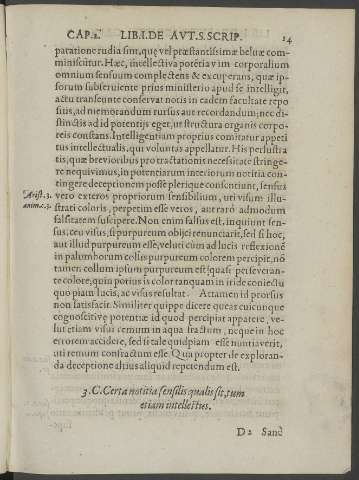 CAP.2. LIB.I.DE AVT.S.SCRIP. 14
paratione rudia sint, quę vel præstantissimæ beluæ com-
miniscitur. Hæc, intellectiva potētia vim corporalium
omnium sensuum complectens & exuperans, quæ ip-
sorum subserviente prius ministerio apud se intelligit,
actu transeunte conservat notis in eadem facultate repo
sitis, ad memorandum rursus aut recordandum; nec di-
stinctis ad id potentijs eget, ut structura organis corpo-
reis constans. Intelligentiam proprius comitatur appeti
tus intellectualis, qui voluntas appellatur. His perlustra
tis, quæ brevioribus pro tractationis necessitate stringe-
re nequivimus, in potentiarum interiorum notitia con-
tingere deceptionem posse plerique consentiunt, sensus
Arist. 3. vero exteros propriorum sensibilium, uti visum illu-
anima. c. 3. strati coloris, perpetim esse veros, aut raro admodum
falsitatem suscipere. Non enim falsus est, inquiunt sen-
sus, ceu visus, si purpureum objici renunciarit, sed si hoc,
aut illud purpureum esse, veluti cùm ad lucis reflexionē
in palumborum collis purpureum colorem percipit, nō
tamen collum ipsum purpureum est quasi perseveran-
te colore, quin potius is color tanquam in iride coniectu
quopiam lucis, ac visus resultat. Attamen id prorsus
non satisfacit. Similiter quippe dicere queas cuicunque
cognoscitivę potentiæ id quod percipiat apparere, ve-
lut etiam visui remum in aqua fractum, neque in hoc
errorem accidere, sed si tale quidpiam esse nuntiaverit,
uti remum confractum esse. Qua propter de exploran-
da deceptione altius aliquid repetendum est.
3. C. Certa notitia sensilis qualis sit, tum
etiam intellectus.
D2 Sanè